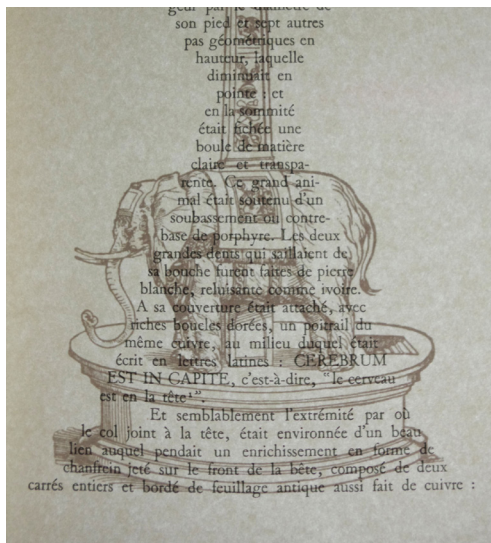 geur par le diamètre de
son pied et sept autres
pas géométriques en
hauteur, laquelle
diminuait en
pointe : et
en la sommité
était fichée une
boule de matière
claire et transpa-
rente. Ce grand ani-
mal était soutenu d'un
soubassement ou contre-
base de porphyre. Les deux
grandes dents qui saillaient de
sa bouche furent faites de pierre
blanche, reluisante comme ivoire.
A sa couverture était attaché, avec
riches boucles dorées, un poitrail du
même cuivre, au milieu duquel était
écrit en lettres latines : CEREBRUM
EST IN CAPITE, c'est-à-dire, "le cerveau
est en la tête¹"
Et semblablement l'extrémité par où
le col joint à la tête, était environnée d'un beau
lien auquel pendait un enrichissement en forme de
chanfrein jeté sur le front de la bête, composé de deux
carrés entiers et bordé de feuillage antique aussi fait de cuivre :